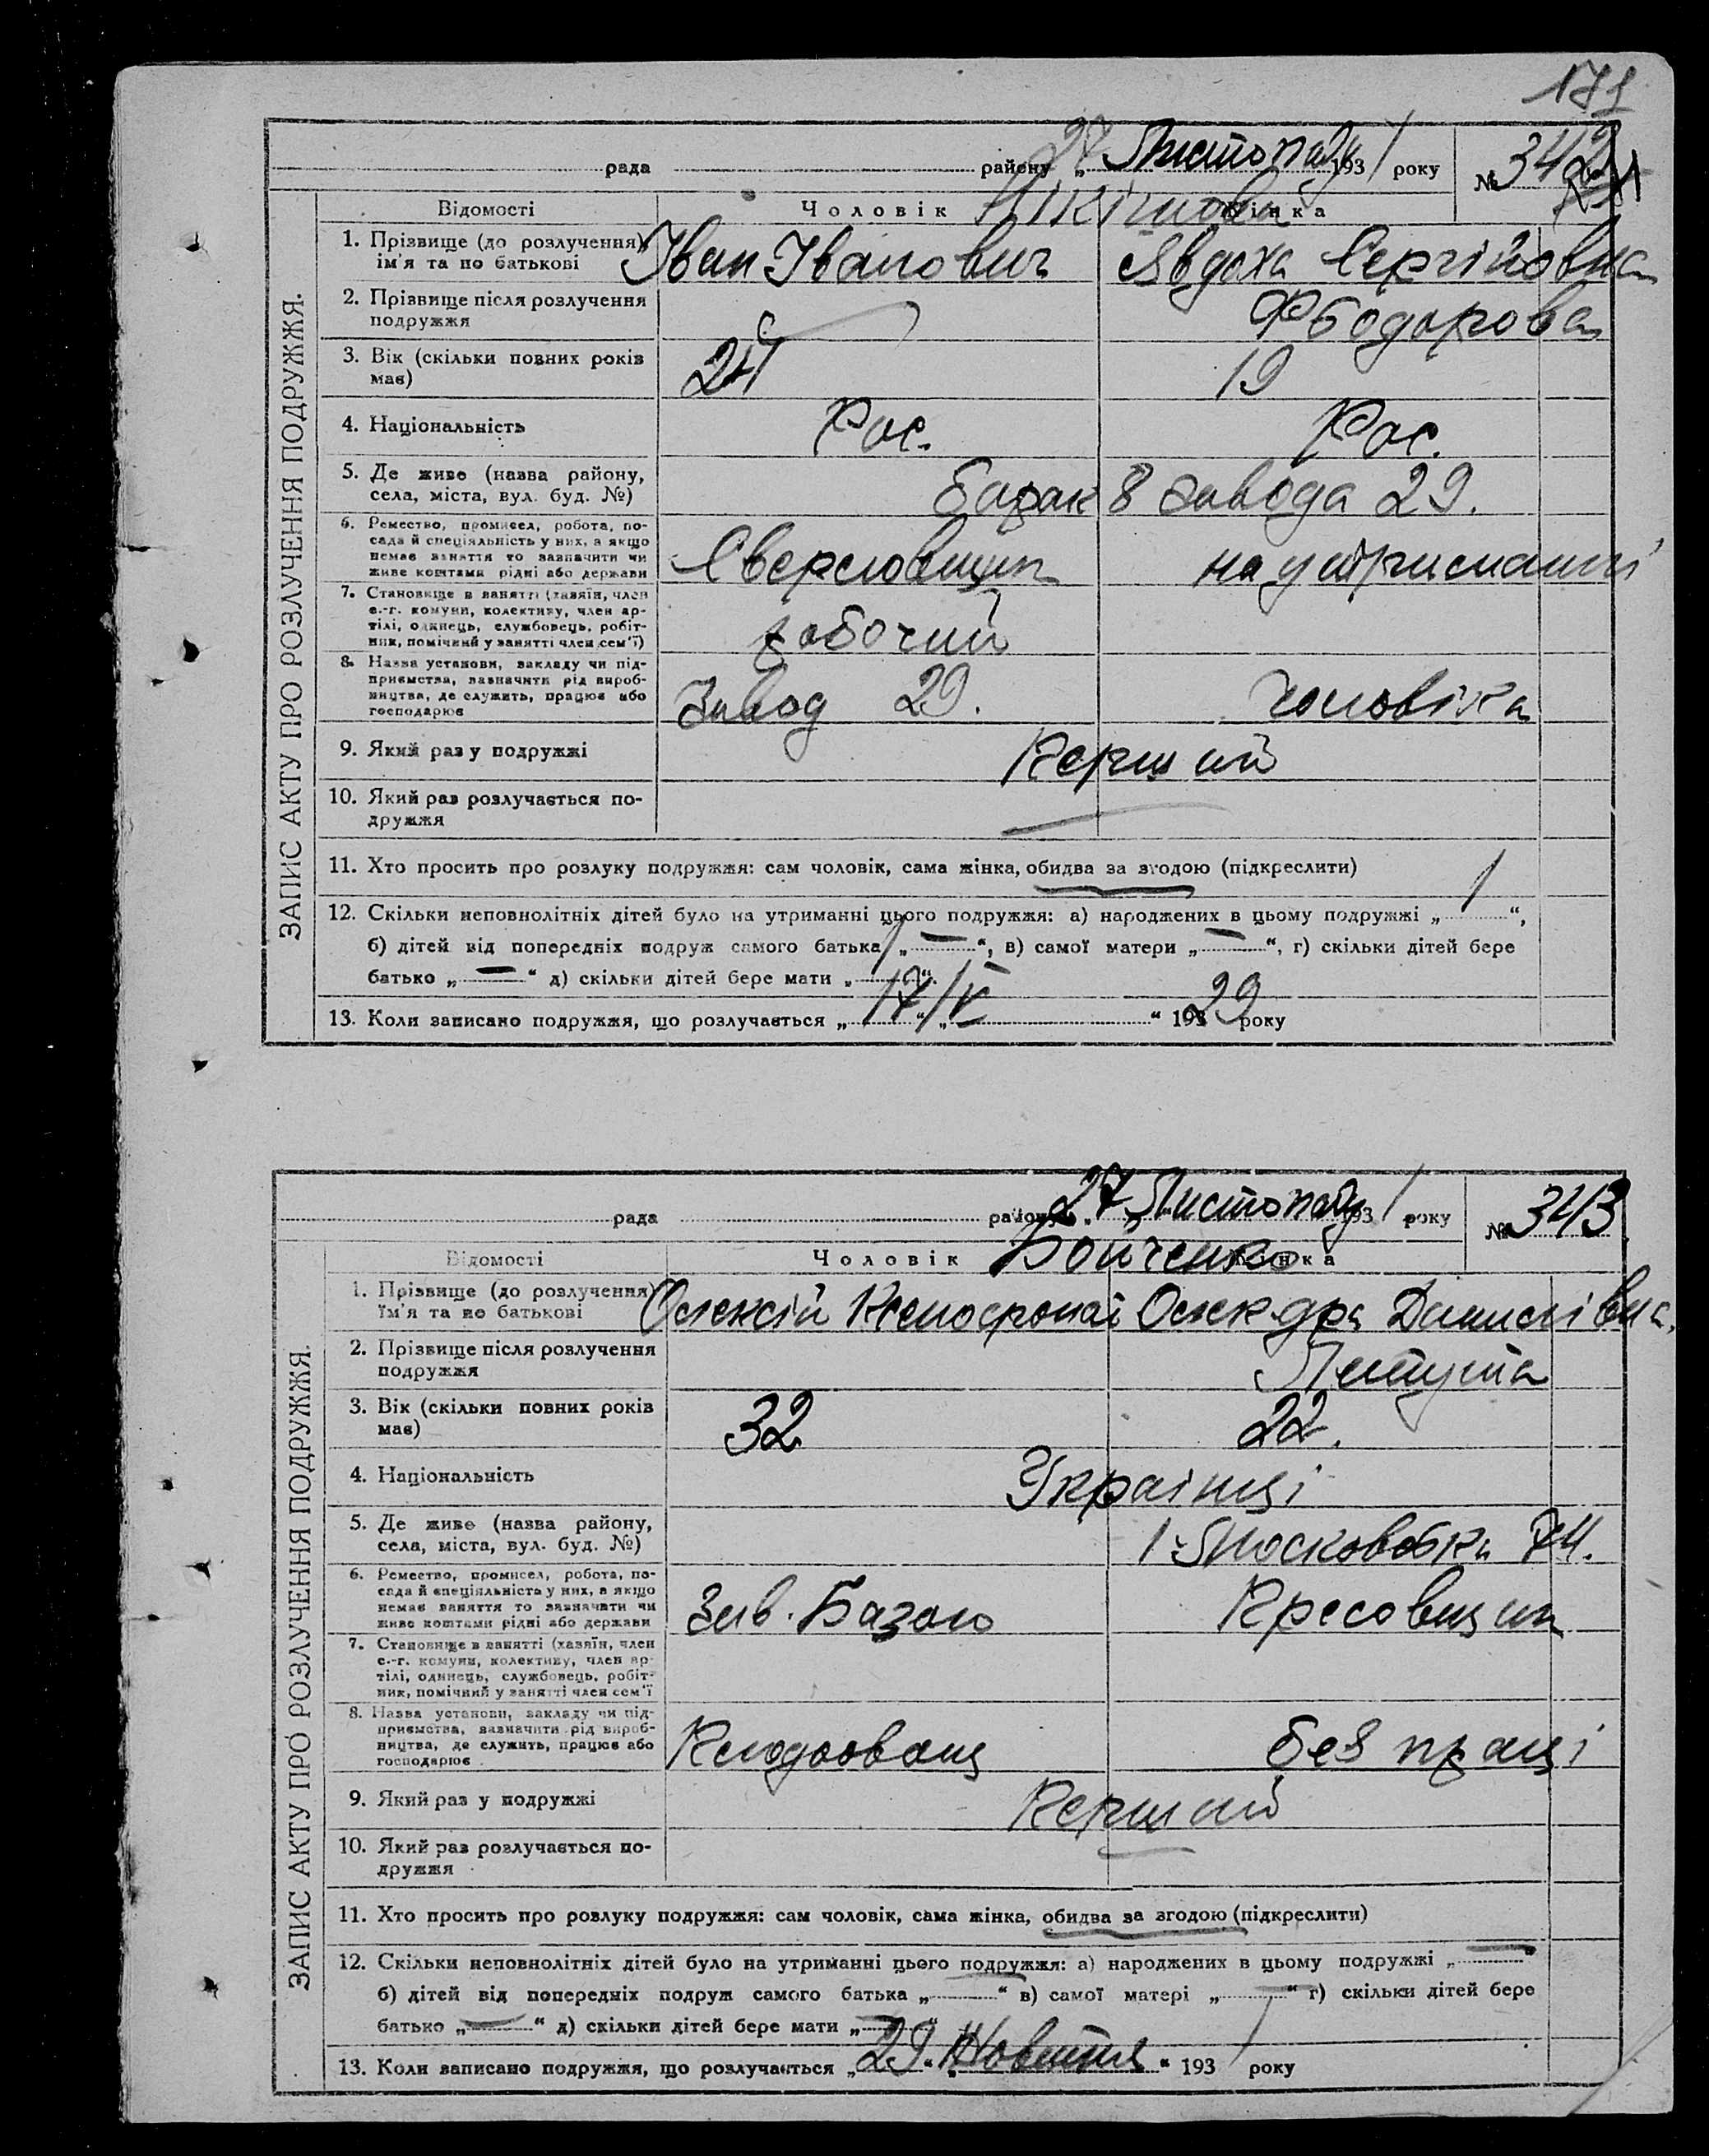 171
рада району „ 27 Листопаду 1931 року № 342
ЗАПИС АКТУ ПРО РОЗЛУЧЕННЯ ПОДРУЖЖЯ.
Відомості Чоловік Жінка
1. Прізвище (до розлучення) ім'я та по батькові Іван Іванович Явдоха Сергіївна
2. Прізвище після розлучення подружжя Фьодорова
3. Вік (скільки повних років має) 24 19
4. Національність Рос. Рос.
5. Де живе (назва району, села, міста, вул. буд. №) барак 8 завода 29.
6. Ремество, промисел, робота, посада й спеціяльність у них, а якщо немає заняття то зазначити чи живе коштами рідні або держави на утриманні
7. Становище в занятті (хазяїн, член с.-г. комуни, колективу, член артілі, одинець, службовець, робітник, помічний у занятті член сем'ї) робочий
8. Назва установи, закладу чи підприємства, зазначити рід виробництва, де служить, працює або господарює Завод 29. Чоловіка
9. Який раз у подружжі Перший
10. Який раз розлучається подружжя —
11. Хто просить про розлуку подружжя: сам чоловік, сама жінка, обидва за згодою (підкреслити)
12. Скільки неповнолітніх дітей було на утриманні цього подружжя: а) народжених в цьому подружжі „ 1 “,
б) дітей від попередніх подруж самого батька „ — “, в) самої матери „ — “, г) скільки дітей бере
батько „ — “ д) скільки дітей бере мати „ 1 “.
13. Коли записано подружжя, що розлучається „ 17 “ „ V “ 1929 року
рада району „ 27 Листопаду 1931 року № 343
ЗАПИС АКТУ ПРО РОЗЛУЧЕННЯ ПОДРУЖЖЯ.
Відомості Чоловік Жінка
Бойченко
1. Прізвище (до розлучення) ім'я та по батькові Олексій Олександра Данилівна
2. Прізвище після розлучення подружжя
3. Вік (скільки повних років має) 32 22.
4. Національність Українці
5. Де живе (назва району, села, міста, вул. буд. №) 74.
6. Ремество, промисел, робота, посада й спеціяльність у них, а якщо немає заняття то зазначити чи живе коштами рідні або держави Зав. Базою
7. Становище в занятті (хазяїн, член с.-г. комуни, колективу, член артілі, одинець, службовець, робітник, помічний у занятті член сем'ї
8. Назва установи, закладу чи підприємства, зазначити рід виробництва, де служить, працює або господарює без праці
9. Який раз у подружжі Перший
10. Який раз розлучається подружжя —
11. Хто просить про розлуку подружжя: сам чоловік, сама жінка, обидва за згодою (підкреслити)
12. Скільки неповнолітніх дітей було на утриманні цього подружжя: а) народжених в цьому подружжі „ — “
б) дітей від попередніх подруж самого батька „ “ в) самої матері „ — “ г) скільки дітей бере
батько „ — “ д) скільки дітей бере мати „ — “
13. Коли записано подружжя, що розлучається „ 29 “ „ Жовтня “ 1931 року